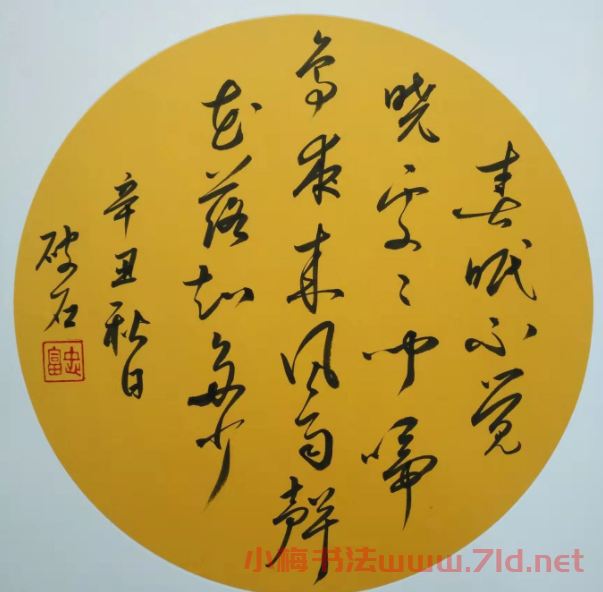 春眠不觉
晓处处闻啼
鸟夜来风雨声
花落知多少
辛丑秋日
破石
忠富
小梅书法www.7ld.net